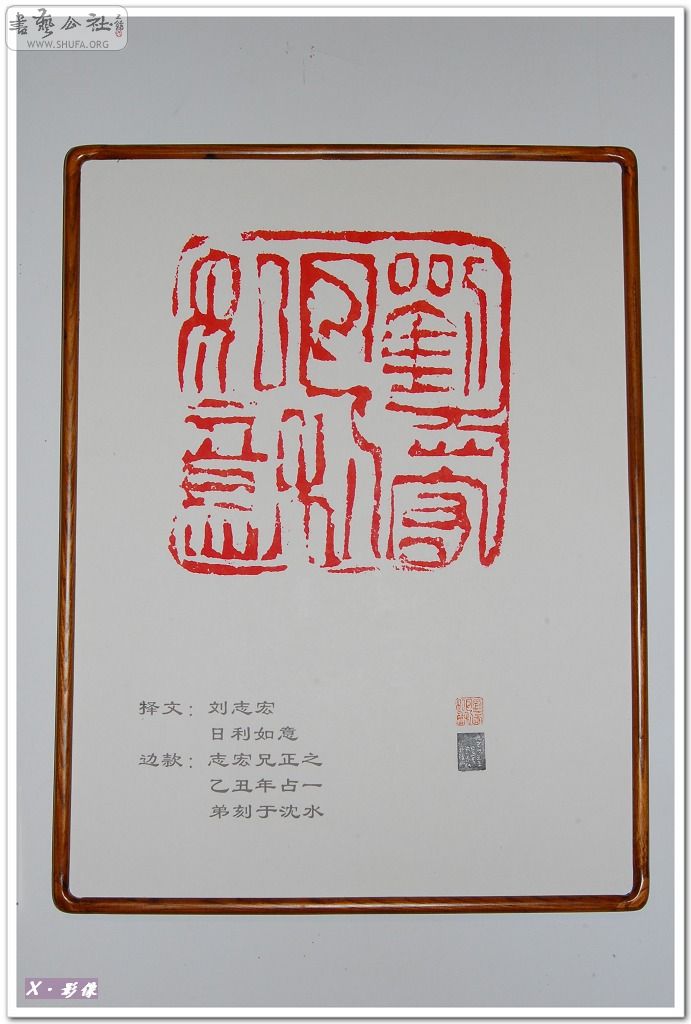 書藝公社
WWW.SHUFA.ORG
劉
日利
如意
择文：刘志宏
日利如意
边款：志宏兄正之
乙丑年占一
弟刻于沈水
X·影像